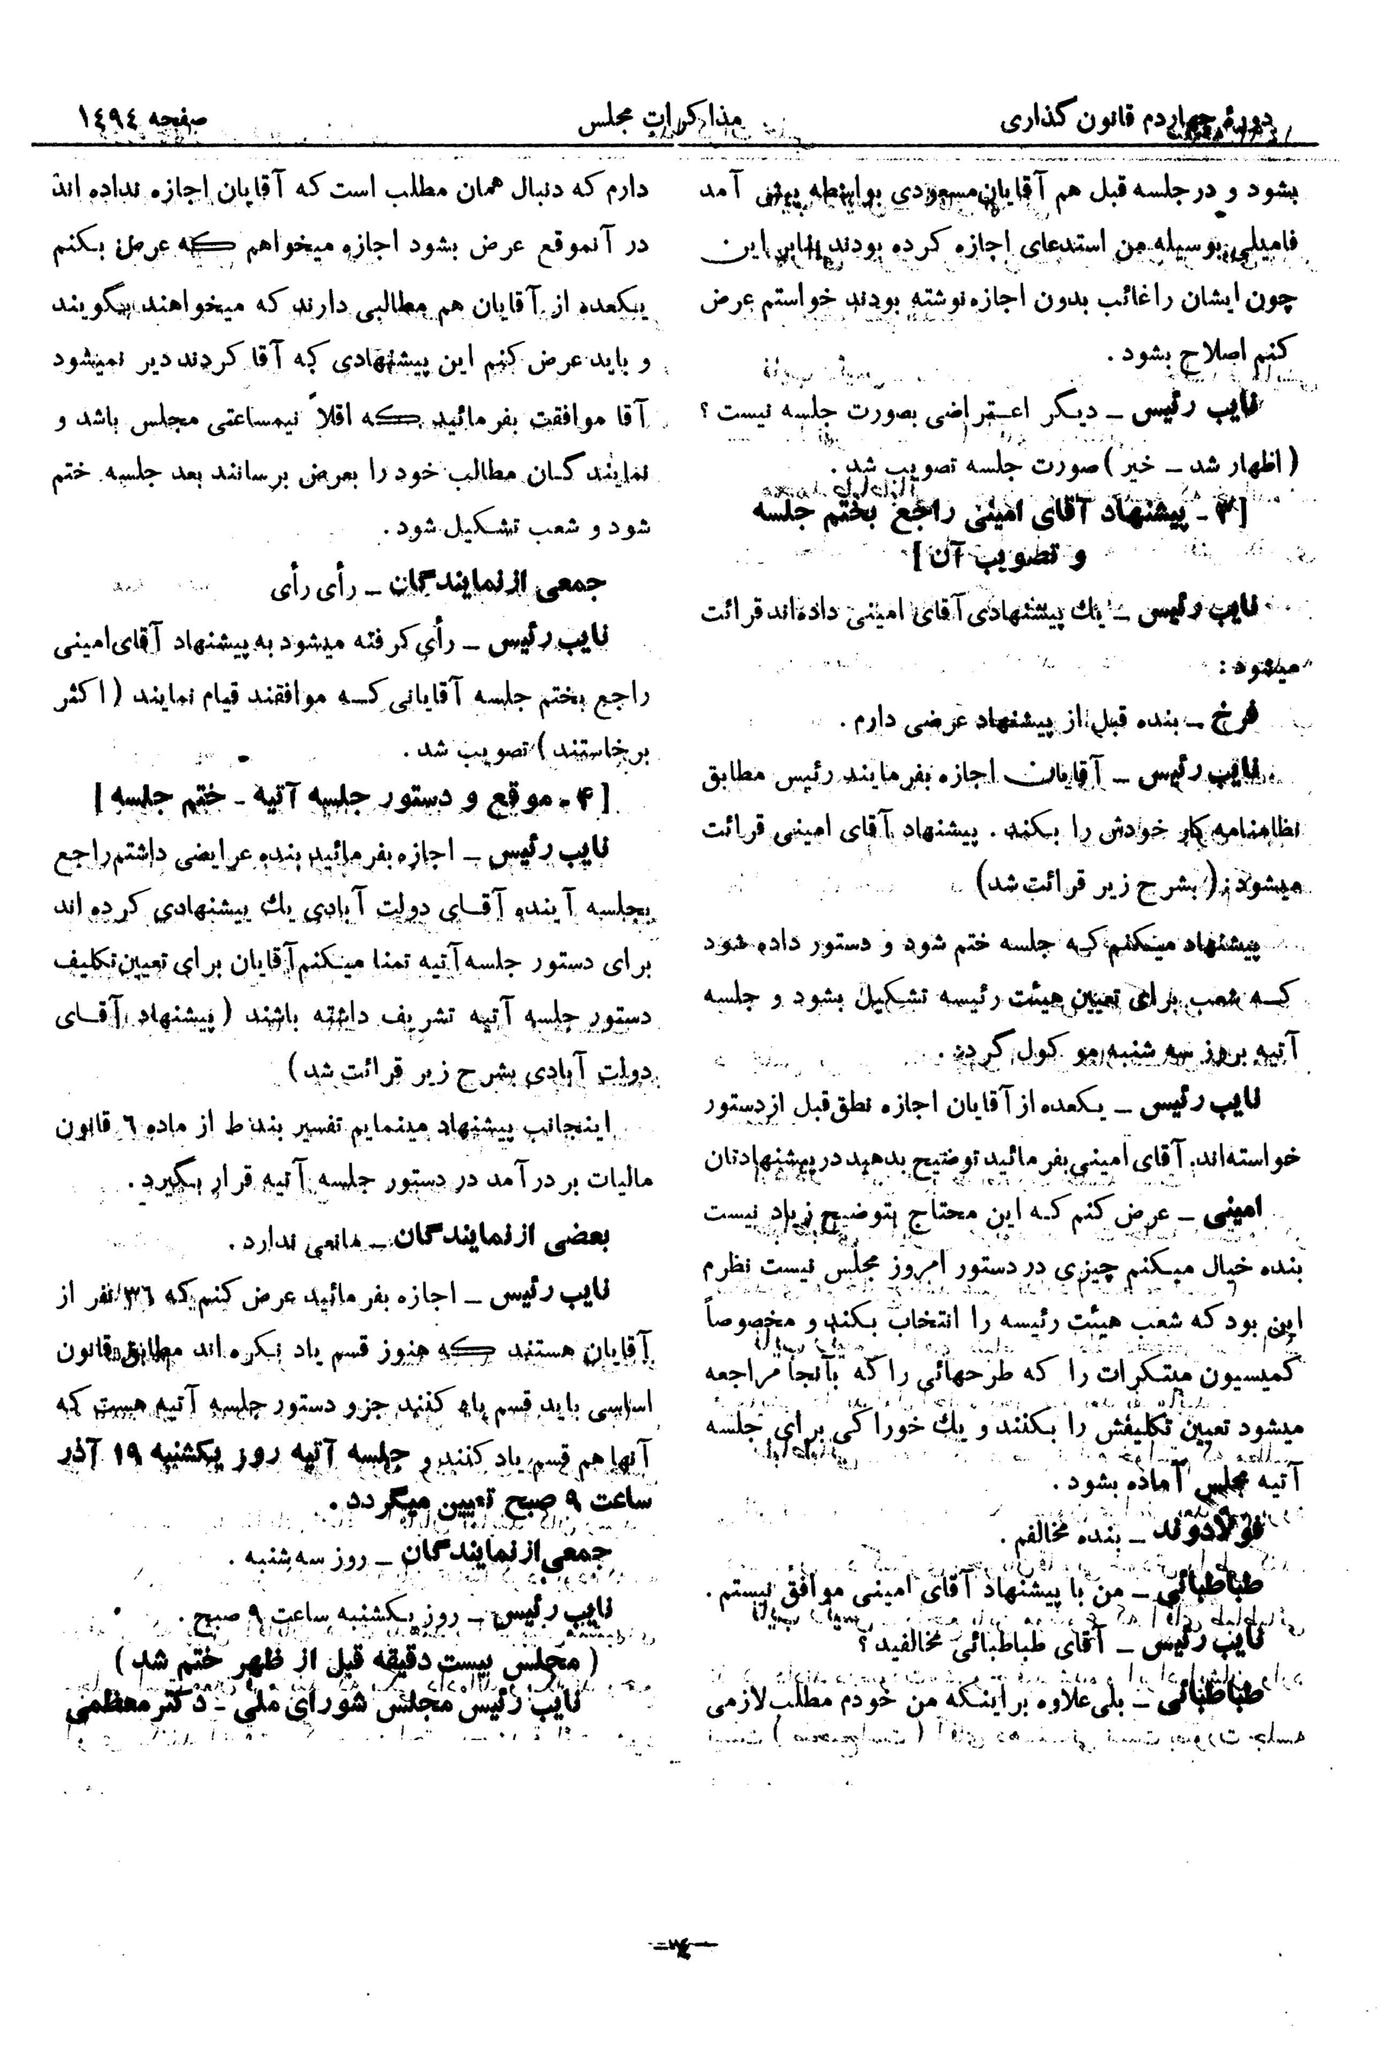 دورهٔ چهاردم قانون گذاری
مذاکرات مجلس
صفحه ١٤٩٤
بشود و درجلسه قبل هم آقایان مسعودی بواسطه پیش آمد
فامیلی بوسیله من استدعای اجازه کرده بودند بنابر این
چون ایشان را غائب بدون اجازه نوشته بودند خواستم عرض
کنم اصلاح بشود .
نایب رئیس ـ دیگر اعتراضی بصورت جلسه نیست ؟
( اظهار شد ـ خیر ) صورت جلسه تصویب شد .
[ ۳ ـ پیشنهاد آقای امینی راجع بختم جلسه
و تصویب آن ]
نایب رئیس ـ یك پیشنهادی آقای امینی داده‌اند قرائت
میشود :
فرخ ـ بنده قبل از پیشنهاد عرضی دارم .
نایب رئیس ـ آقایان اجازه بفرمایند رئیس مطابق
نظامنامه کار خودش را بکند . پیشنهاد آقای امینی قرائت
میشود : ( بشرح زیر قرائت شد )
پیشنهاد میکنم که جلسه ختم شود و دستور داده شود
که شعب برای تعیین هیئت رئیسه تشکیل بشود و جلسه
آتیه بروز سه شنبه موکول گردد .
نایب رئیس ـ یکعده از آقایان اجازه نطق قبل از دستور
خواسته‌اند. آقای امینی بفرمائید توضیح بدهید در پیشنهادتان
امینی ـ عرض کنم که این محتاج بتوضیح زیاد نیست
بنده خیال میکنم چیزی در دستور امروز مجلس نیست نظرم
این بود که شعب هیئت رئیسه را انتخاب بکند و مخصوصاً
کمیسیون مبتکرات را که طرحهائی را که بآنجا مراجعه
میشود تعیین تکلیفش را بکنند و یك خوراکی برای جلسه
آتیه مجلس آماده بشود .
فولادوند ـ بنده مخالفم .
طباطبائی ـ من با پیشنهاد آقای امینی موافق نیستم .
نایب رئیس ـ آقای طباطبائی مخالفید ؟
طباطبائی ـ بلی علاوه بر اینکه من خودم مطلب لازمی
دارم که دنبال همان مطلب است که آقایان اجازه نداده اند
در آنموقع عرض بشود اجازه میخواهم که عرض بکنم
یکعده از آقایان هم مطالبی دارند که میخواهند بگویند
و باید عرض کنم این پیشنهادی که آقا کردند دیر نمیشود
آقا موافقت بفرمائید که اقلاً نیمساعتی مجلس باشد و
نمایندگان مطالب خود را بعرض برسانند بعد جلسه ختم
شود و شعب تشکیل شود .
جمعی از نمایندگان ـ رأی رأی
نایب رئیس ـ رأی گرفته میشود به پیشنهاد آقای امینی
راجع بختم جلسه آقایانی که موافقند قیام نمایند ( اکثر
برخاستند ) تصویب شد .
[ ۴ ـ موقع و دستور جلسه آتیه ـ ختم جلسه ]
نایب رئیس ـ اجازه بفرمائید بنده عرایضی داشتم راجع
بجلسه آینده آقای دولت آبادی یك پیشنهادی کرده اند
برای دستور جلسه آتیه تمنا میکنم آقایان برای تعیین تکلیف
دستور جلسه آتیه تشریف داشته باشند ( پیشنهاد آقای
دولت آبادی بشرح زیر قرائت شد )
اینجانب پیشنهاد مینمایم تفسیر بند ط از ماده ٦ قانون
مالیات بر درآمد در دستور جلسه آتیه قرار بگیرد .
بعضی از نمایندگان ـ مانعی ندارد .
نایب رئیس ـ اجازه بفرمائید عرض کنم که ٣٦ نفر از
آقایان هستند که هنوز قسم یاد نکره اند مطابق قانون
اساسی باید قسم یاد کنند جزو دستور جلسه آتیه هست که
آنها هم قسم یاد کنند و جلسه آتیه روز یکشنبه ۱۹ آذر
ساعت ۹ صبح تعیین میگردد .
جمعی از نمایندگان ـ روز سه شنبه .
نایب رئیس ـ روز یکشنبه ساعت ۹ صبح .
( مجلس بیست دقیقه قبل از ظهر ختم شد )
نایب رئیس مجلس شورای ملی ـ دکتر معظمی